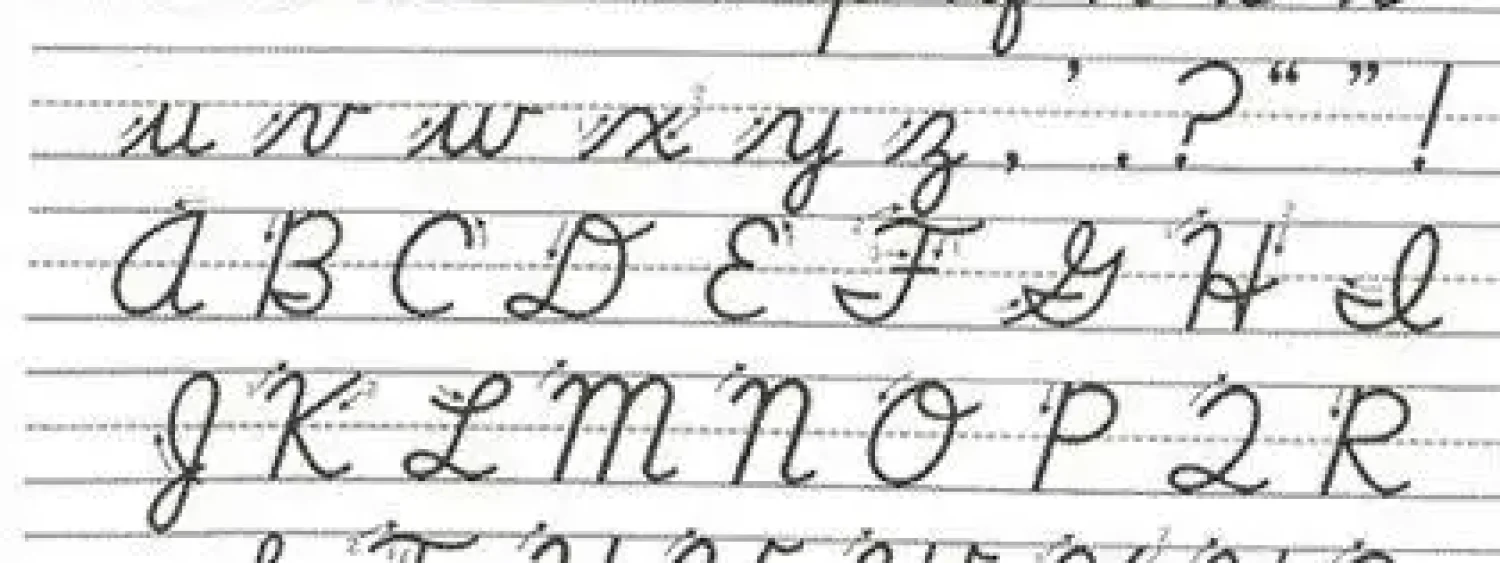 u v w x y z , ’ . ? “ ” !
A B C D E F G H I
J K L M N O P Q R